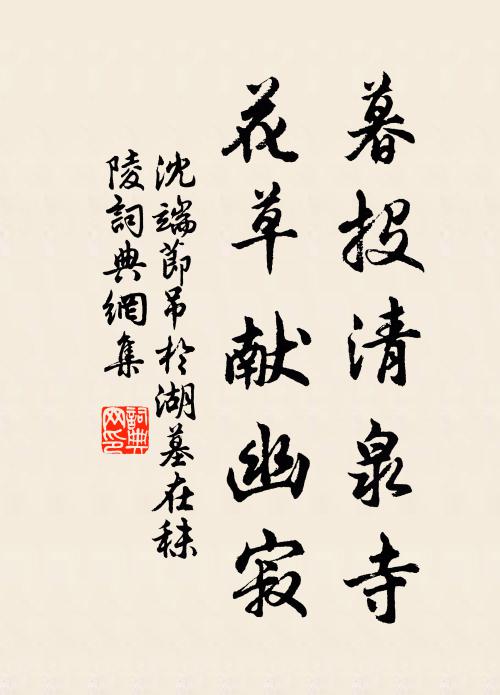 暮投清泉寺
花草献幽寂
沈端節吊於湖墓在秣
陵詞典網集
詞典网印